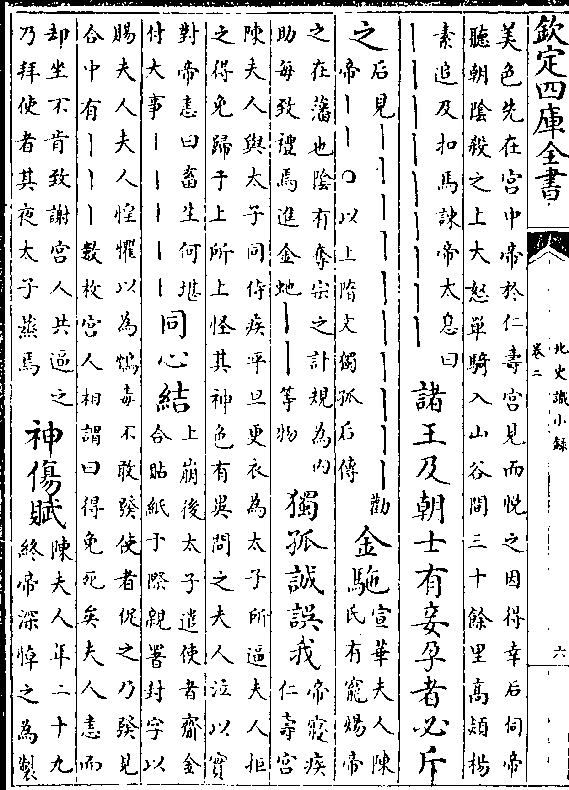 欽定四庫全書
北史識小録
卷二
六
美色先在宮中帝於仁壽宮見而悅之因得幸后伺帝
聽朝陰殺之上大怒單騎入山谷間三十餘里高熲楊
素追及扣馬諫帝太息曰
｜｜｜｜｜｜｜｜｜
諸王及朝士有妾孕者必斥
之
后見｜｜｜｜｜｜｜｜｜｜勸
帝｜｜○以上隋文獨孤后傳
金駞
宣華夫人陳
氏有寵賜帝
之在藩也陰有奪宗之計規為内
助每致禮焉進金虵｜｜等物
獨孤誠誤我
帝寢疾
仁壽宮
陳夫人與太子同侍疾平旦更衣為太子所逼夫人拒
之得免歸于上所上怪其神色有異問之夫人泣以實
對帝恚曰畜生何堪
付大事｜｜｜｜｜
同心結
上崩後太子遣使者齎金
合貼紙于際親署封字以
賜夫人夫人惶懼以為鴆毒不敢發使者促之乃發見
合中有｜｜｜數枚宮人相謂曰得免死矣夫人恚而
却坐不肯致謝宮人共逼之
乃拜使者其夜太子烝焉
神傷賦
陳夫人年二十九
終帝深悼之為製